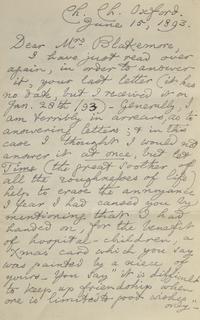 Ch. Ch. Oxford.
June 15, 1893.
Dear Mrs Blakemore,
I have just read over
again, in order to answer
it, your last letter (it has
no date, but I received it on
Jan. 28th /93) - Generally, I
am terribly in arrears, as to
answering letters; & in this
case I thought I would not
answer it at once, but let
Time (the great soother of
all the roughnesses of life)
help to erase the annoyance
I fear I had caused you by
mentioning that I had
handed on, for the benefit
of hospital-children, a
Xmas card which you say
was painted by a niece of
yours. You say "it is difficult
to keep up friendship when
one is limited to good wishes
only -